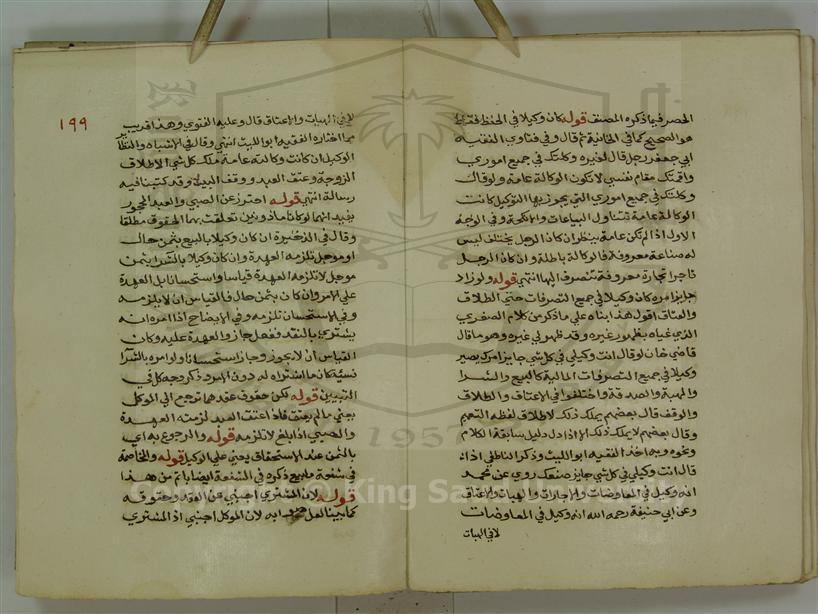 الحصر فيما ذكره المصنف قوله كان وكيلا في الحفظ فقط
هو الصحيح كما في الخانية ثم قال وفي فتاوي الفقيه
ابي جعفر رجل قال لغيره وكلتك في جميع اموري
واقمتك مقام نفسي لا تكون الوكالة عامة ولو قال
وكلتك في جميع اموري التي يجوز بها التوكيل كانت
الوكالة عامة تتناول البياعات والانكحة وفي الوجه
الاول اذا لم تكن عامة ينظر ان كان الرجل يختلف ليس
له صناعة معروفة فالوكالة باطلة وان كان الرجل
تاجرا تجارة معروفة تنصرف اليها انتهي قوله ولو زاد
جايز امره كان وكيلا في جميع التصرفات حتي الطلاق
والعتاق اقول هذا بناه علي ما ذكر من كلام الصغري
الذي غياه بظهور غيره وقد ظهر لي غيره وهو ما قال
قاضي خان لو قال انت وكيلي في كل شي جايز امرك يصير
وكيلا في جميع التصرفات المالية كالبيع والشرا
والهبة والصدقة واختلفوا في الاعتاق والطلاق
والوقف قال بعضهم يملك ذلك لاطلاق لفظه التعميم
وقال بعضهم لا يملك ذلك الا اذا دل دليل سابقة الكلام
ونحوه وبه اخذ الفقيه ابو الليث وذكر الناطفي اذا
قال انت وكيلي في كل شي جايز صنعك روي عن محمد
انه وكيل في المعاوضات والاجارات والهبات والاعتاق
وعن ابي حنيفة رحمه الله انه وكيل في المعاوضات
لا في الهبات
١٩٩
لا في الهبات والاعتاق قال وعليه الفتوي وهذا قريب
مما اختاره الفقيه ابو الليث انتهي وقال في الاشباه والنظاير
الوكيل ان كانت وكالته عامة ملك كل شي الا طلاق
الزوجة وعتق العبد ووقف البيت وقد كتبنا فيه
رسالة انتهي قوله احترز عن الصبي والعبد المحجور
يفيد انهما لو كانا ماذونين تعلقت بهما الحقوق مطلقا
وقال في الذخيرة ان كان وكيلا بالبيع بثمن حال
او موجل تلزمه العهدة وان كان وكيلا بالشرا بثمن
موجل لا تلزمه العهدة قياسا واستحسانا بل العهدة
علي الامر وان كان بثمن حال فالقياس ان لا يلزمه
وفي الاستحسان تلزمه وفي الايضاح اذا امره انه
يشتري بالنقد ففعل جاز والعهدة عليه وكان
القياس ان لا يجوز وجاز استحسانا ولو امره بالشرا
نسية كان ما اشتراه له دون الامر وذكر وجه كل في
التبيين قوله لكن حقوق عقدهما ترجع الي الموكل
يعني ما لم يعتق فاذا عتق العبد لزمته العهدة
والصبي اذا بلغ لا تلزمه قوله والرجوع به اي
بالثمن عند الاستحقاق يعني علي الوكيل قوله والمخاصمة
في شفعة ما بيع ذكره في الشفعة ايضا باتم من هذا
قوله لان المشتري اجنبي عن العقد وحقوقه
كما بينا لعل ابه لان الموكل اجنبي اذ المشتري
1957
King Sa